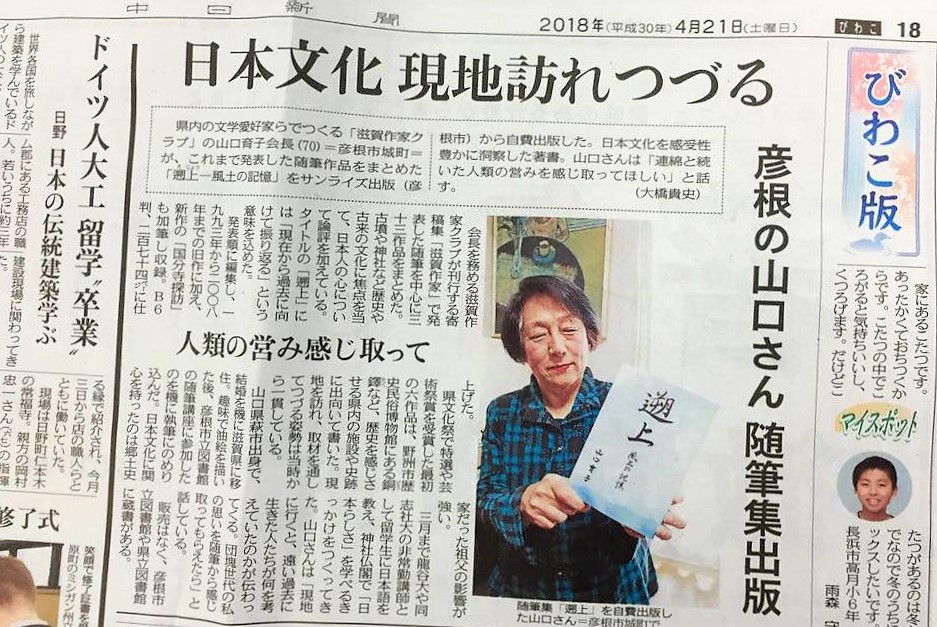 中日新聞
2018年(平成30年)4月21日(土曜日)
びわこ
18
びわこ版
日本文化 現地訪れつづる
彦根の山口さん 随筆集出版
県内の文学愛好家らでつくる「滋賀作家ク
ラブ」の山口育子会長(70)=彦根市城町=
が、これまで発表した随筆作品をまとめた
「遡上―風土の記憶」をサンライズ出版(彦
根市)から自費出版した。日本文化を感受性
豊かに洞察した著書。山口さんは「連綿と続
いた人類の営みを感じ取ってほしい」と話
す。
(大橋貴史)
会長を務める滋賀作
家クラブが刊行する寄
稿集「滋賀作家」で発
表した随筆を中心に三
十三作品をまとめた。
古墳や神社など歴史や
古来の文化に焦点を当
て、日本人の心につい
て論評を加えている。
タイトルの「遡上」に
は「現在から過去に向
けて振り返る」という
意味を込めた。
発表順に編集し、一
九九三年から二〇〇八
年までの旧作に加え、
新作の「国分寺探訪」
も加筆し収録。B6
判、二百七十四㌻に仕
人類の営み感じ取って
上げた。
県文化祭で特選や芸
術祭賞を受賞した最初
の六作品は、野洲市歴
史民俗博物館にある銅
鐸など、歴史を感じさ
せる県内の施設や史跡
に出向いて書いた。現
地を訪れ、取材を通し
てつづる姿勢は当時か
ら一貫している。
山口県萩市出身で、
結婚を機に滋賀県に移
住。趣味で油絵を描い
た後、彦根市立図書館
の随筆講座に参加した
のを機に執筆にのめり
込んだ。日本文化に関
心を持ったのは郷土史
家だった祖父の影響が
強い。
三月まで龍谷大や同
志社大の非常勤講師と
して留学生に日本語を
教え、神社仏閣で「日
本らしさ」を学べるき
っかけをつくってき
た。山口さんは「現地
に行くと、遠い過去に
生きた人たちが何を考
えていたのかが伝わっ
てくる。団塊世代の私
の思いを随筆から感じ
取ってもらえたら」と
話している。
販売はなく、彦根市
立図書館や県立図書館
に蔵書がある。
遡上
風土の記憶
山口育子
随筆集「遡上」を自費出版し
た山口さん=彦根市城町で
ドイツ人大工 留学〝卒業〟
日野 日本の伝統建築学ぶ
世界各国を旅しなが
ら建築を学んでいるド
る縁で紹介され、今月
三日から店の職人らと
ともに働いていた。
現場は日野町仁本木
の常福寺。親方の岡村
修了式
家にあるこたつです。
あったかくておちつくか
らです。こたつの中でご
ろがると気持ちいいし、
くつろげます。だけどこ
マイスポット
たつがあるのは冬
長浜市高月小6年
雨森